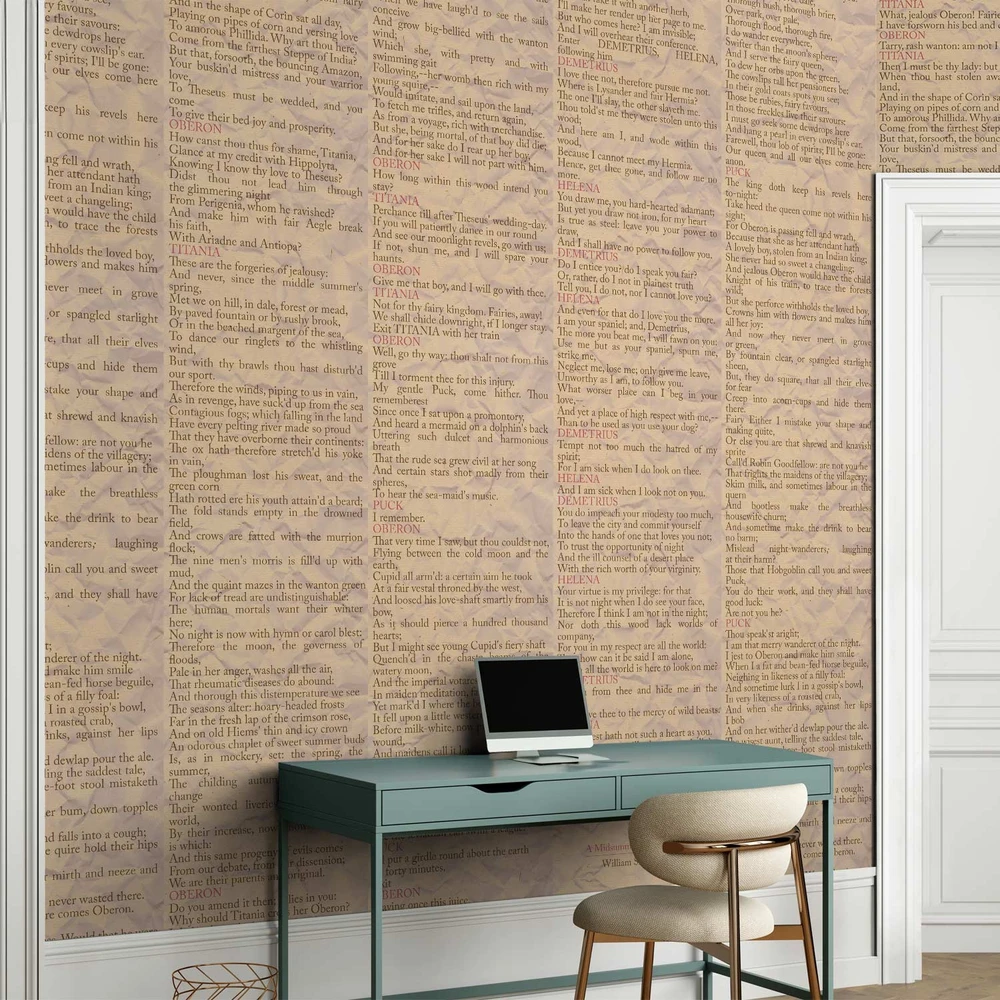 y favours,
e dewdrops here
n every cowslip's ear.
f spirits; I'll be gone:
l our elves come here
keep his revels here
n come not within his
ng fell and wrath,
her attendant hath
from an Indian king;
weet a changeling;
n would have the child
n, to trace the forests
thholds the loved boy,
lowers and makes him
never meet in grove
or spangled starlight
re, that all their elves
-cups and hide them
stake your shape and
at shrewd and knavish
fellow: are not you he
idens of the villagery;
metimes labour in the
make the breathless
ke the drink to bear
wanderers, laughing
blin call you and sweet
k, and they shall have
nderer of the night.
d make him smile
ean-fed horse beguile,
s of a filly foal:
I in a gossip's bowl,
roasted crab,
inks, against her lips
d dewlap pour the ale.
ling the saddest tale,
e-foot stool mistaketh
er bum, down topples
nd falls into a cough;
e quire hold their hips
mirth and neeze and
never wasted there.
re comes Oberon.
And in the shape of Corin sat all day,
Playing on pipes of corn and versing love
To amorous Phillida. Why art thou here,
Come from the farthest Steppe of India?
But that, forsooth, the bouncing Amazon,
Your buskin'd mistress and your warrior
love,
To Theseus must be wedded, and you
come
To give their bed joy and prosperity.
OBERON
How canst thou thus for shame, Titania,
Glance at my credit with Hippolyta,
Knowing I know thy love to Theseus?
Didst thou not lead him through
the glimmering night
From Perigenia, whom he ravished?
And make him with fair Aegle break
his faith,
With Ariadne and Antiopa?
TITANIA
These are the forgeries of jealousy:
And never, since the middle summer's
spring,
Met we on hill, in dale, forest or mead,
By paved fountain or by rushy brook,
Or in the beached margent of the sea,
To dance our ringlets to the whistling
wind,
But with thy brawls thou hast disturb'd
our sport.
Therefore the winds, piping to us in vain,
As in revenge, have suck'd up from the sea
Contagious fogs; which falling in the land
Have every pelting river made so proud
That they have overborne their continents:
The ox hath therefore stretch'd his yoke
in vain,
The ploughman lost his sweat, and the
green corn
Hath rotted ere his youth attain'd a beard;
The fold stands empty in the drowned
field,
And crows are fatted with the murrion
flock;
The nine men's morris is fill'd up with
mud,
And the quaint mazes in the wanton green
For lack of tread are undistinguishable:
The human mortals want their winter
here;
No night is now with hymn or carol blest:
Therefore the moon, the governess of
floods,
Pale in her anger, washes all the air,
That rheumatic diseases do abound:
And thorough this distemperature we see
The seasons alter: hoary-headed frosts
Far in the fresh lap of the crimson rose,
And on old Hiems' thin and icy crown
An odorous chaplet of sweet summer buds
Is, as in mockery, set: the spring, the
summer,
The childing autumn
change
Their wonted liveries
world,
By their increase, now
is which:
And this same progeny evils comes
From our debate, from our dissension;
We are their parents and original.
OBERON
Do you amend it then; lies in you:
Why should Titania cross her Oberon?
conceive
And grow big-bellied with the wanton
wind;
Which she, with pretty and with
swimming gait
Following,--her womb then rich with my
young squire,--
Would imitate, and sail upon the land,
To fetch me trifles, and return again,
As from a voyage, rich with merchandise.
But she, being mortal, of that boy did die;
And for her sake do I rear up her boy,
And for her sake I will not part with him.
OBERON
How long within this wood intend you
stay?
TITANIA
Perchance till after Theseus' wedding-day.
If you will patiently dance in our round
And see our moonlight revels, go with us;
If not, shun me, and I will spare your
haunts.
OBERON
Give me that boy, and I will go with thee.
TITANIA
Not for thy fairy kingdom. Fairies, away!
We shall chide downright, if I longer stay.
Exit TITANIA with her train
OBERON
Well, go thy way: thou shalt not from this
grove
Till I torment thee for this injury.
My gentle Puck, come hither. Thou
rememberest
Since once I sat upon a promontory,
And heard a mermaid on a dolphin's back
Uttering such dulcet and harmonious
breath
That the rude sea grew civil at her song
And certain stars shot madly from their
spheres,
To hear the sea-maid's music.
PUCK
I remember.
OBERON
That very time I saw, but thou couldst not,
Flying between the cold moon and the
earth,
Cupid all arm'd: a certain aim he took
At a fair vestal throned by the west,
And loosed his love-shaft smartly from his
bow,
As it should pierce a hundred thousand
hearts;
But I might see young Cupid's fiery shaft
Quench'd in the chaste
watery moon,
And the imperial votaress
In maiden meditation,
Yet mark'd I where the
It fell upon a little western
Before milk-white, now
wound,
put a girdle round about the earth
forty minutes.
OBERON
Having once this juice,
I'll make her render up her page to me.
But who comes here? I am invisible;
And I will overhear their conference.
Enter DEMETRIUS, HELENA,
following him
DEMETRIUS
I love thee not, therefore pursue me not.
Where is Lysander and fair Hermia?
The one I'll slay, the other slayeth me.
Thou told'st me they were stolen unto this
wood;
And here am I, and wode within this
wood,
Because I cannot meet my Hermia.
Hence, get thee gone, and follow me no
more.
HELENA
You draw me, you hard-hearted adamant;
But yet you draw not iron, for my heart
Is true as steel: leave you your power to
draw,
And I shall have no power to follow you.
DEMETRIUS
Do I entice you? do I speak you fair?
Or, rather, do I not in plainest truth
Tell you, I do not, nor I cannot love you?
HELENA
And even for that do I love you the more.
I am your spaniel; and, Demetrius,
The more you beat me, I will fawn on you:
Use me but as your spaniel, spurn me,
strike me,
Neglect me, lose me; only give me leave,
Unworthy as I am, to follow you.
What worser place can I beg in your
love,--
And yet a place of high respect with me,--
Than to be used as you use your dog?
DEMETRIUS
Tempt not too much the hatred of my
spirit;
For I am sick when I do look on thee.
HELENA
And I am sick when I look not on you.
DEMETRIUS
You do impeach your modesty too much,
To leave the city and commit yourself
Into the hands of one that loves you not;
To trust the opportunity of night
And the ill counsel of a desert place
With the rich worth of your virginity.
HELENA
Your virtue is my privilege: for that
It is not night when I do see your face,
Therefore I think I am not in the night;
Nor doth this wood lack worlds of
company,
For you in my respect are all the world:
how can it be said I am alone,
all the world is here to look on me?
from thee and hide me in the
thee to the mercy of wild beasts.
hath not such a heart as you.
A Midsummer
William S
Over park, over pale,
Thorough flood, thorough fire,
I do wander everywhere,
Swifter than the moon's sphere;
And I serve the fairy queen,
To dew her orbs upon the green.
The cowslips tall her pensioners be:
In their gold coats spots you see;
Those be rubies, fairy favours,
In those freckles live their savours:
I must go seek some dewdrops here
And hang a pearl in every cowslip's ear.
Farewell, thou lob of spirits; I'll be gone:
Our queen and all our elves come here
anon.
PUCK
The king doth keep his revels here
to-night:
Take heed the queen come not within his
sight;
For Oberon is passing fell and wrath,
Because that she as her attendant hath
A lovely boy, stolen from an Indian king;
She never had so sweet a changeling;
And jealous Oberon would have the child
Knight of his train, to trace the forests
wild;
But she perforce withholds the loved boy,
Crowns him with flowers and makes him
all her joy:
And now they never meet in grove
or green,
By fountain clear, or spangled starlight
sheen,
But, they do square, that all their elves
for fear
Creep into acorn-cups and hide them
there.
Fairy Either I mistake your shape and
making quite,
Or else you are that shrewd and knavish
sprite
Call'd Robin Goodfellow: are not you he
That frights the maidens of the villagery;
Skim milk, and sometimes labour in the
quern
And bootless make the breathless
housewife churn;
And sometime make the drink to bear
no barm;
Mislead night-wanderers, laughing
at their harm?
Those that Hobgoblin call you and sweet
Puck,
You do their work, and they shall have
good luck:
Are not you he?
PUCK
Thou speak'st aright;
I am that merry wanderer of the night.
I jest to Oberon and make him smile
When I a fat and bean-fed horse beguile,
Neighing in likeness of a filly foal:
And sometime lurk I in a gossip's bowl,
In very likeness of a roasted crab,
And when she drinks, against her lips
I bob
And on her wither'd dewlap pour the ale.
The wisest aunt, telling the saddest tale,
TITANIA
What, jealous Oberon! Fairi
I have forsworn his bed an
OBERON
Tarry, rash wanton: am not I
TITANIA
Then I must be thy lady: but
When thou hast stolen awa
land,
And in the shape of Corin s
Playing on pipes of corn and
To amorous Phillida. Why a
Come from the farthest Stepp
But that, forsooth, the bounc
Your buskin'd mistress and
love,
To Theseus must be wedde